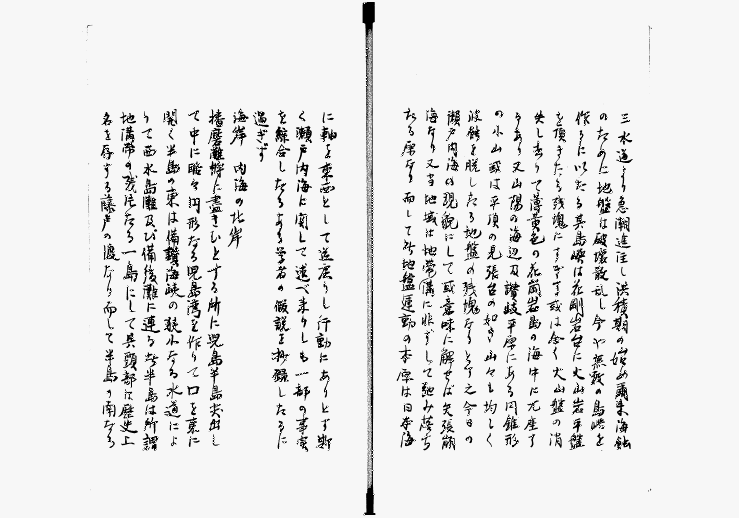 三水道より急潮進注し洪積期の始め爾来海蝕
のために地盤は破壊散乱し今や無数の島嶼を
作るに以たる其島嶼は花剛岩台に火山岩平盤
を頂きたる残塊にすぎず或は全く火山盤の消
失し去りて薄黄色の花崗岩島の海中に兀座す
るあり又山陽の海辺及讃岐平原にある円錐形
の小山或は平頂の見張台の如き山々も均しく
波蝕を脱したる地盤の残塊なるとす之今日の
瀬戸内海の現観にして或意味に解せば矢張崩
海なり又当地域は地帯溝に非ずして弛み落ち
たる原なり而して此地盤運動の本原は日本海
に軸を東西として送戻りし行動にありとす斯
く瀬戸内海に関して述べ来りしも一部の事実
を綜合したるある学者の仮説を抄録したるに
過ぎず
海岸 内海の北岸
播磨灘将に盡きむとする所に児島半島突出し
て中に略々円形なる児島湾を作りて口を東に
開く半島の東は備讃海峡の狭小なる水道によ
りて西水島灘及び備後灘に連る此半島は所謂
地溝帯の残片たる一島にして其頸部は歴史上
名を存する藤戸の渡なり而して半島の南なる